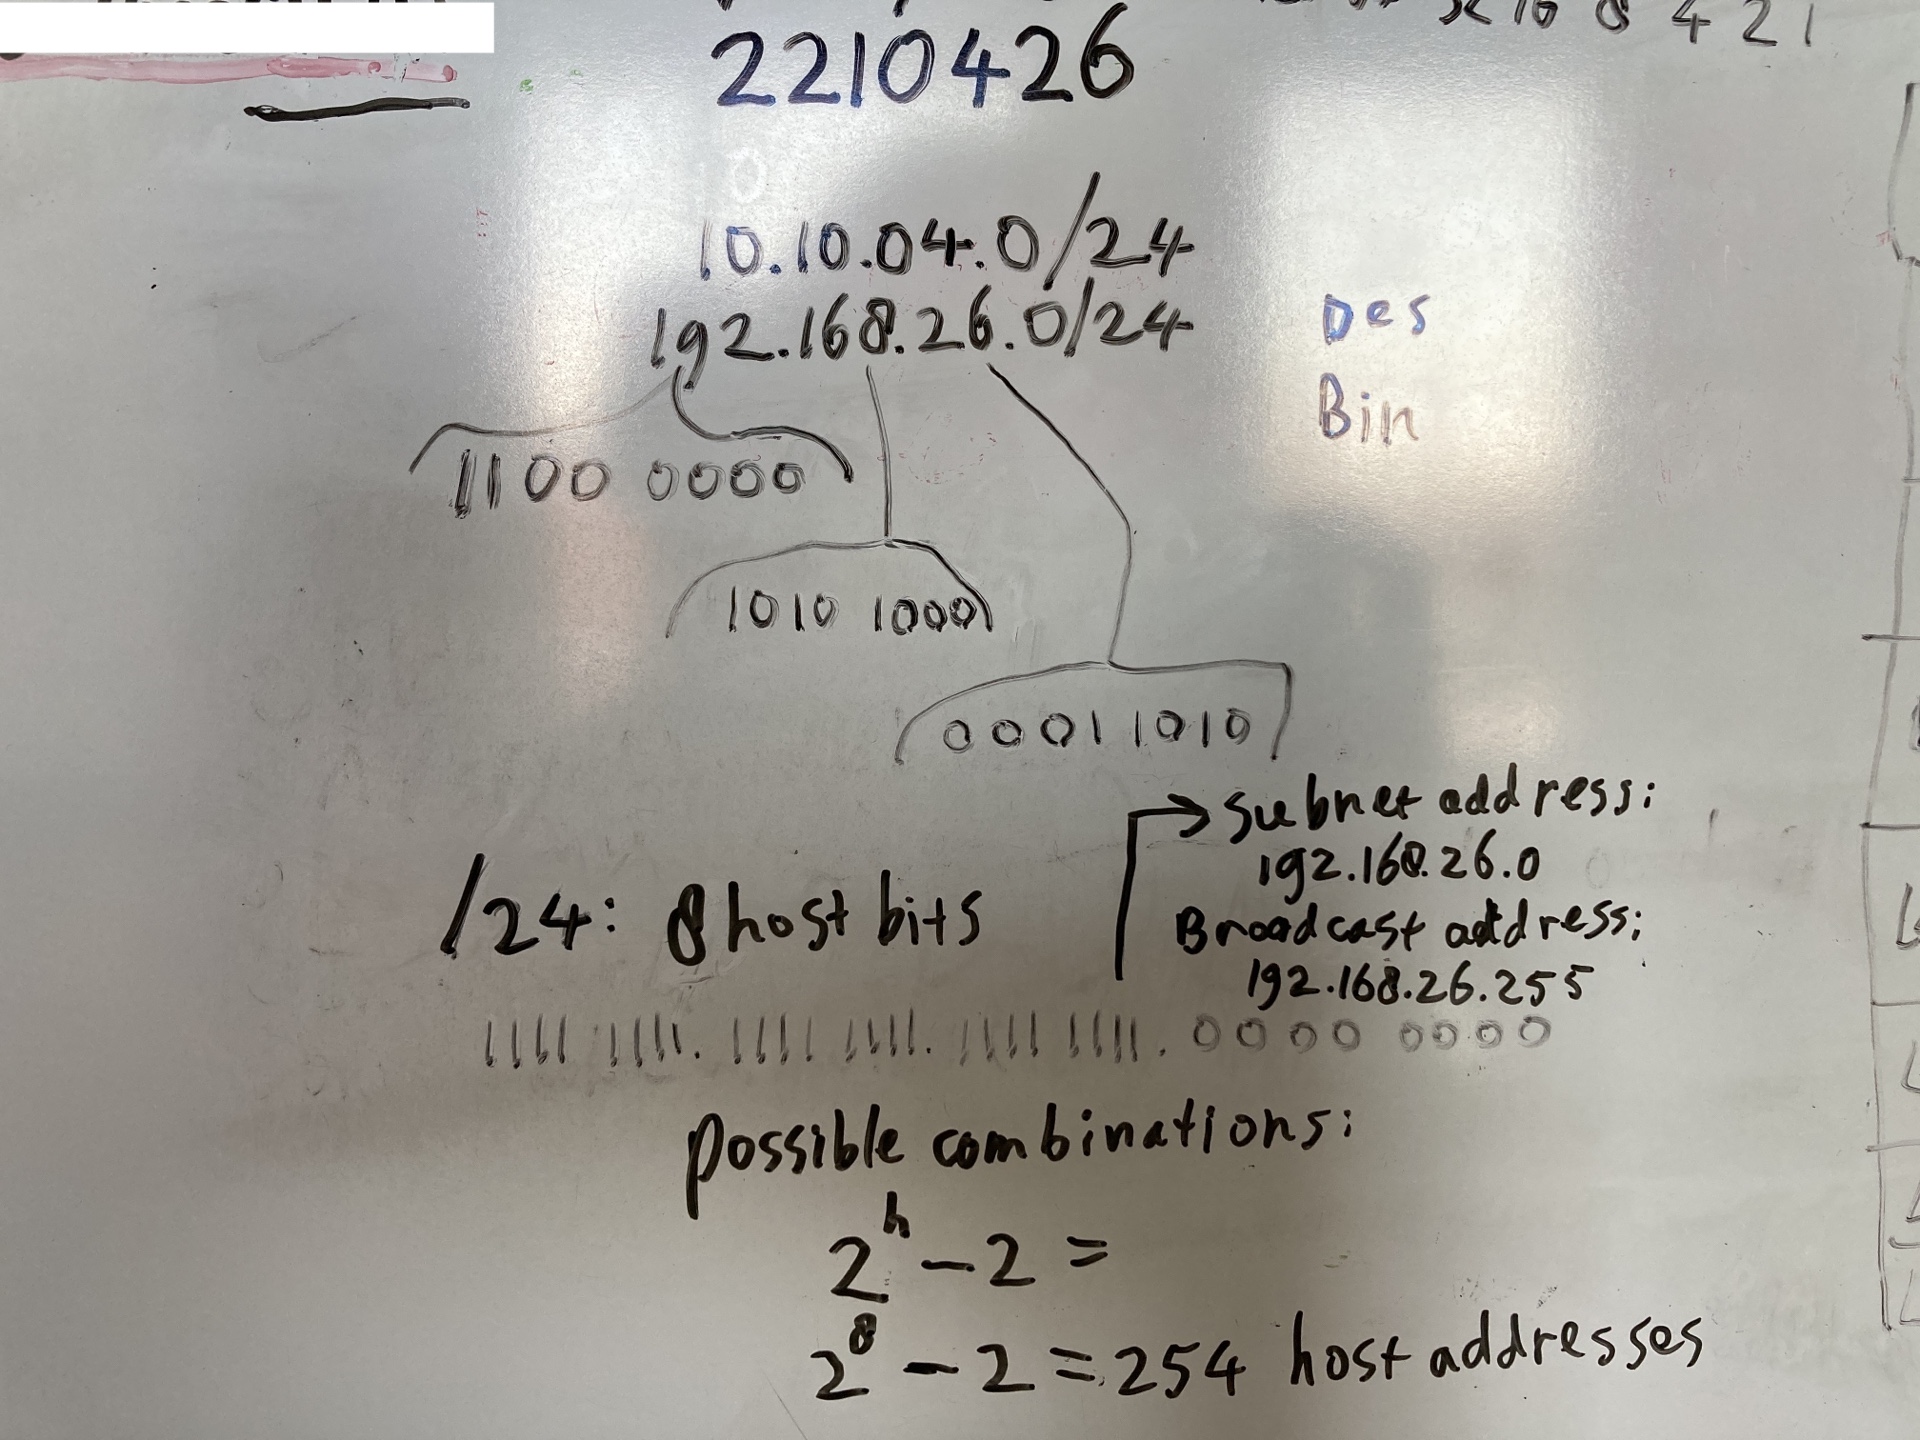 16 8 4 2 1
2210426
10.10.04.0/24
192.168.26.0/24
Des
Bin
1100 0000
1010 1000
0001 1010
Subnet address:
192.168.26.0
/24: 8 host bits
Broadcast address:
192.168.26.255
1111 1111. 1111 1111. 1111 1111. 0000 0000
possible combinations:
2^h - 2 =
2^8 - 2 = 254 host addresses